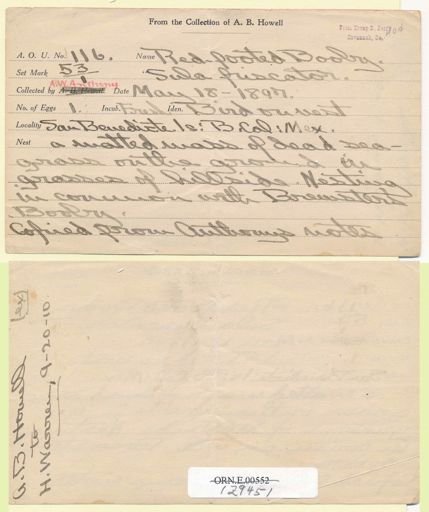 From the Collection of A. B. Howell
From Harry B.
Savannah, Ga.
A. O. U. No. 116. Name Red-footed Booby.
Set Mark 53/1 Sula piscator.
A.W. Anthony
Collected by A. B. Howell Date May 18-1897.
No. of Eggs 1. Incub. Fresh Iden. Bird on nest
Locality San Benedicte Is: B. Cal: Mex.
Nest a matted mass of dead sea-
grass on the ground in
grasses of hillside. Nesting
in common with Brewsters
Booby.
Copied from Anthonys notes
A. B. Howell [ex]
to
H. Warren, 9-20-10.
ORN.E.00552
129451